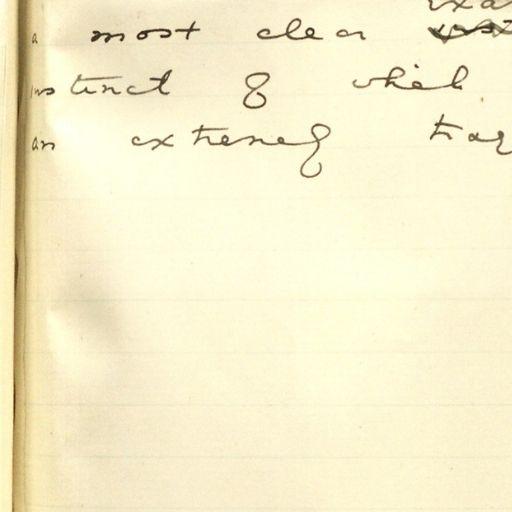 a most clear
instinct of which
an extremely